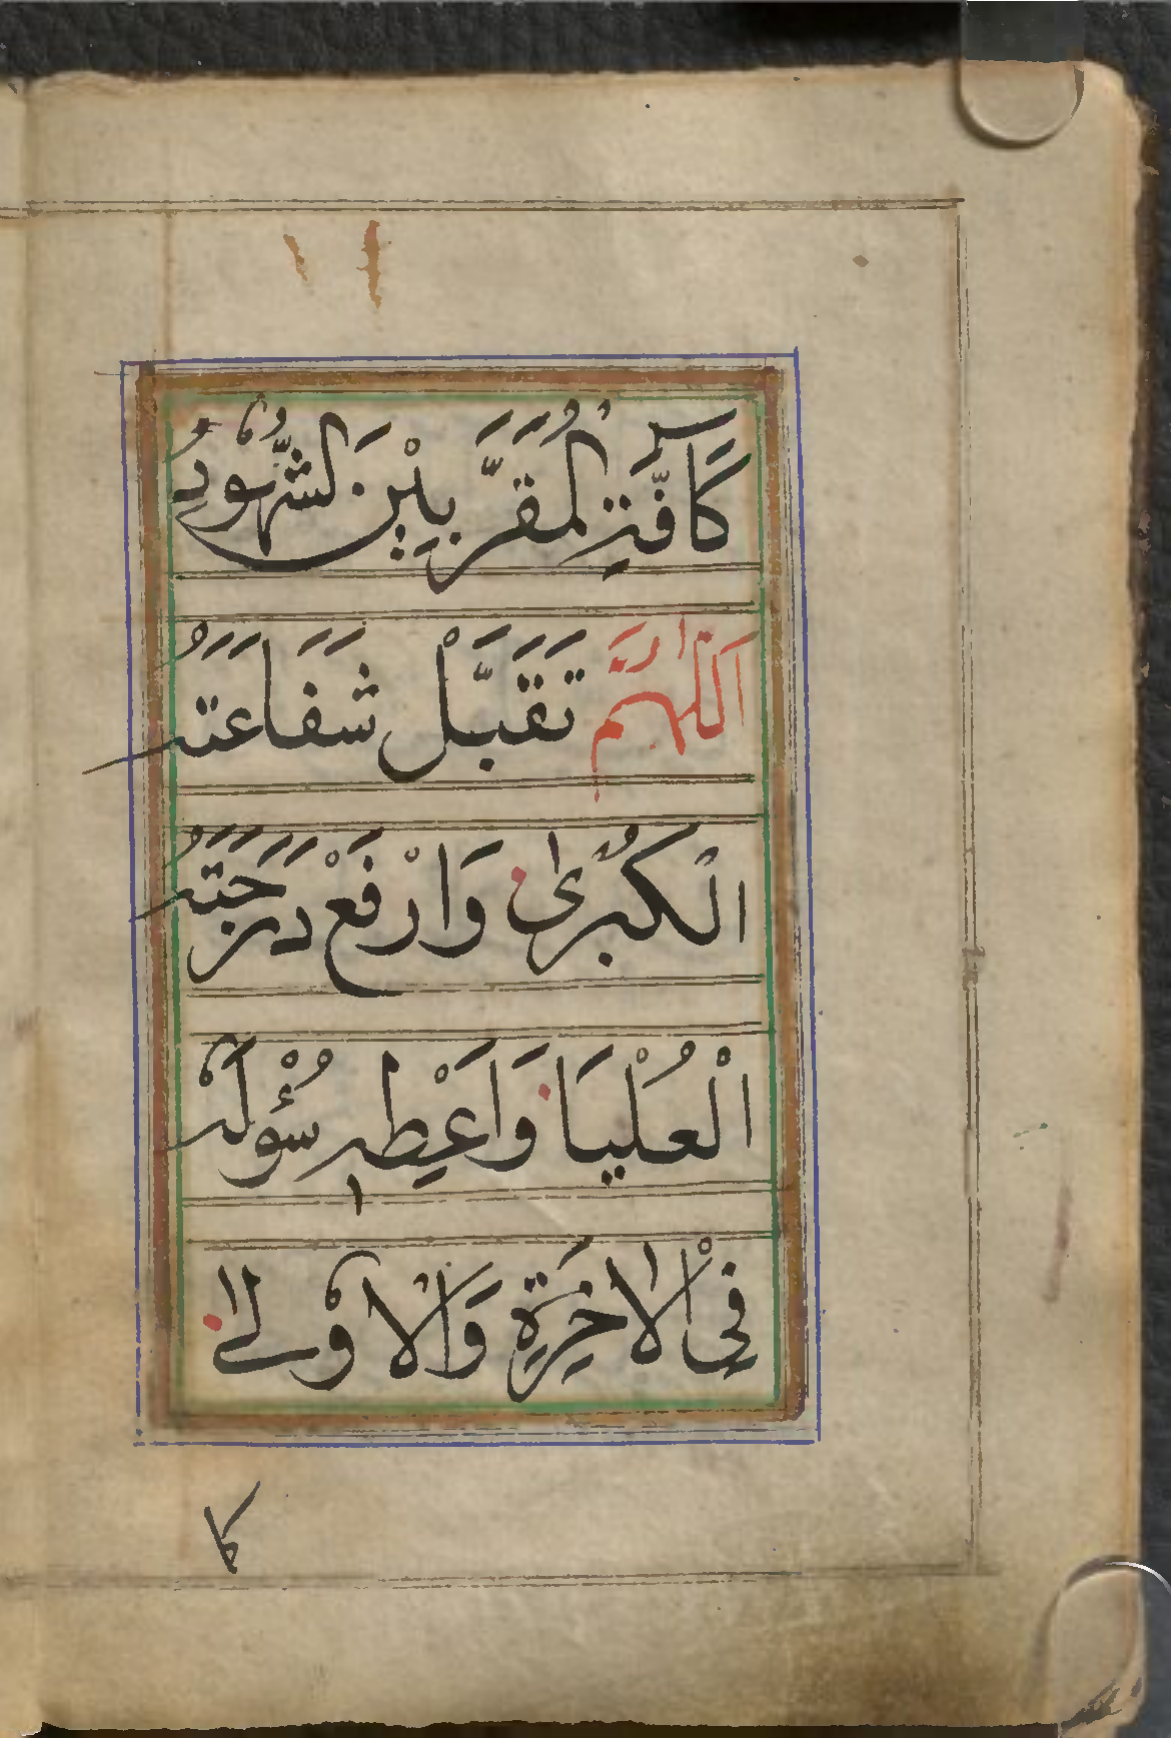 كَافَّةِ الْمُقَرَّبِيْنَ الشُّهُوْدِ
اَللّٰهُمَّ تَقَبَّلْ شَفَاعَتَهُ
الْكُبْرٰى وَارْفَعْ دَرَجَتَهُ
الْعُلْيَا وَاَعْطِهٖ سُؤْلَهٗ
فِى الْاٰخِرَةِ وَالْاُوْلٰى
كا